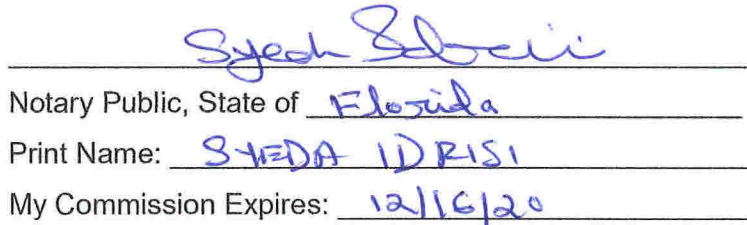 Syeda Idrisi
Notary Public, State of Florida
Print Name: SYEDA IDRISI
My Commission Expires: 12/16/20